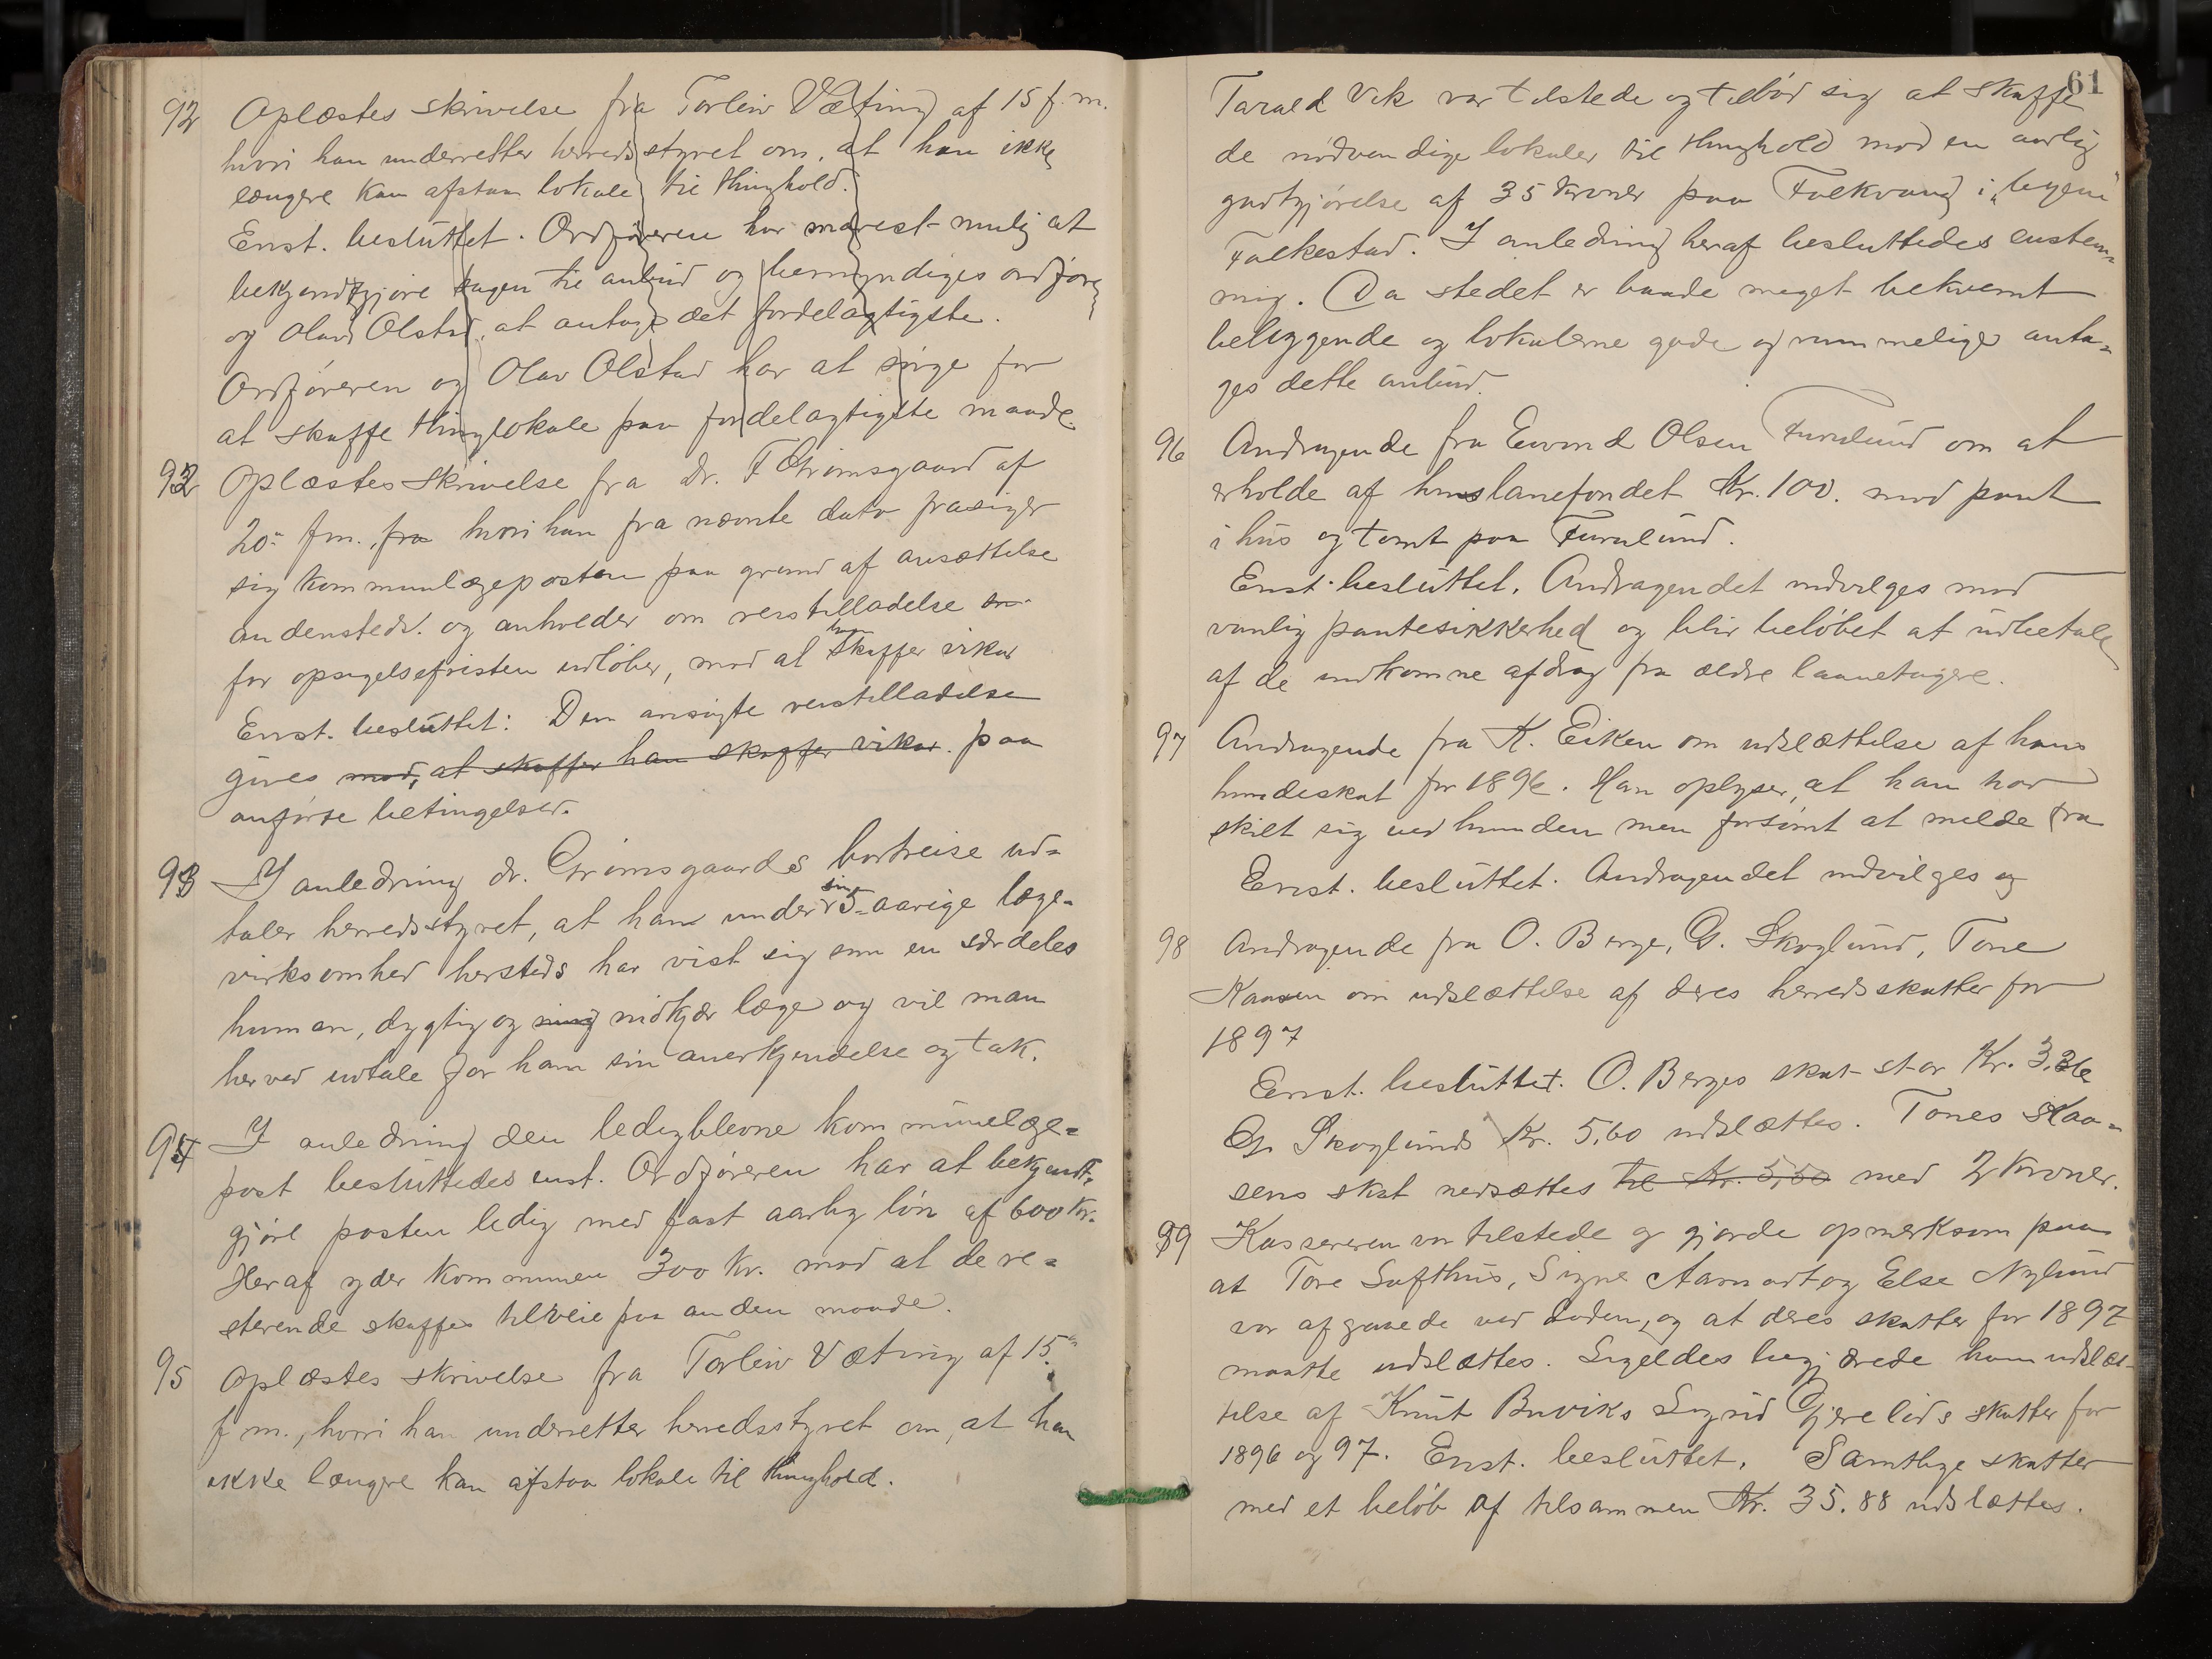 92 Oplæstes skrivelse fra Torleiv Væting af 15 f. m.
hvori han underretter herredsstyret om, at han ikke
længere kan afstaa lokale til thinghold.
Enst. besluttet. Ordføreren har snarest mulig at
bekjendtgjøre sagen til anbud og bemyndiges ordfører
og Olav Olstad at antage det fordelagtigste.
Ordføreren og Olav Olstad har at sørge for
at skaffe thinglokale paa fordelagtigste maade.
92 Oplæstes skrivelse fra dr. F Grimsgaard af
20de fm. fra hvori han fra nævnte dato frasiger
sig kommunlægeposten paa grund af ansættelse
andensteds. og anholder om reistilladelse
før opsigelsefristen udløber, mod at han skaffer vikar
Enst. besluttet: Den ansøgte reistilladelse
gives mod, at skaffer han skaffer vikar. paa
anførte betingelser.
93 I anledning dr. Grimsgaards bortreise ud-
taler herredsstyret, at han under sin 5-aarige læge-
virksomhed hersteds har vist sig som en særdeles
human, dygtig og nidkjær læge og vil man
herved udtale for ham sin anerkjendelse og tak.
94 I anledning den ledigblevne kommunelæge-
post besluttedes enst. Ordføreren har at bekjendt-
gjøre posten ledig med fast aarlig løn af 600 kr.
Heraf yder kommunen 300 kr. mod at de re-
sterende skaffes tilveie paa anden maade.
95 Oplæstes skrivelse fra Torleiv Væting af 15de
f m., hvori han underretter herredsstyret om, at han
ikke længere kan afstaa lokale til thinghold.
61
Tarald Vik var tilstede og tilbød sig at skaffe
de nødvendige lokaler til thinghold mod en aarlig
godtgjørelse af 35 kroner paa Folkvang i "byen"
Folkestad. I anledning heraf besluttedes enstem-
mig. Da stedet er baade meget bekvemt
beliggende og lokalerne gode og rummelige anta-
ges dette anbud.
96 Andragende fra Eivind Olsen Furulund om at
erholde af huslaanefondet Kr. 100. mod pant
i hus og tomt paa Furulund.
Enst. besluttet. Andragendet indvilges mod
vanlig pantesikkerhed og blir beløbet at udbetale
af de indkomne afdrag fra ældre laanetagere.
97 Andragende fra K. Eiken om udslættelse af hans
hundeskat for 1896. Han oplyser, at han har
skilt sig ved hunden men forsømt at melde fra
Enst. besluttet. Andragendet indvilges og
98 Andragende fra O. Berge, G. Skoglund, Tone
Kaasen om udslættelse af deres herredsskatter for
1897
Enst. besluttet. O. Berges skat stor Kr. 3.36
G. Skoglunds Kr. 5,60 udslættes. Tones Kaa-
sens skat nedsættes til Kr. 5,60 med 2 kroner.
99 Kassereren var tilstede og gjorde opmerksom paa
at Tore Lofthus, Signe Aarnodt og Else Nylund
var afgaaede ved døden, og at deres skatter for 1897
maatte udslættes. Ligeledes begjærede han udslæt-
telse af Knut Buviks Sigrid Gjerelids skatter for
1896 og 97. Enst. besluttet. Samtlige skatter
med et beløb af tilsammen Kr. 35.88 udslættes.